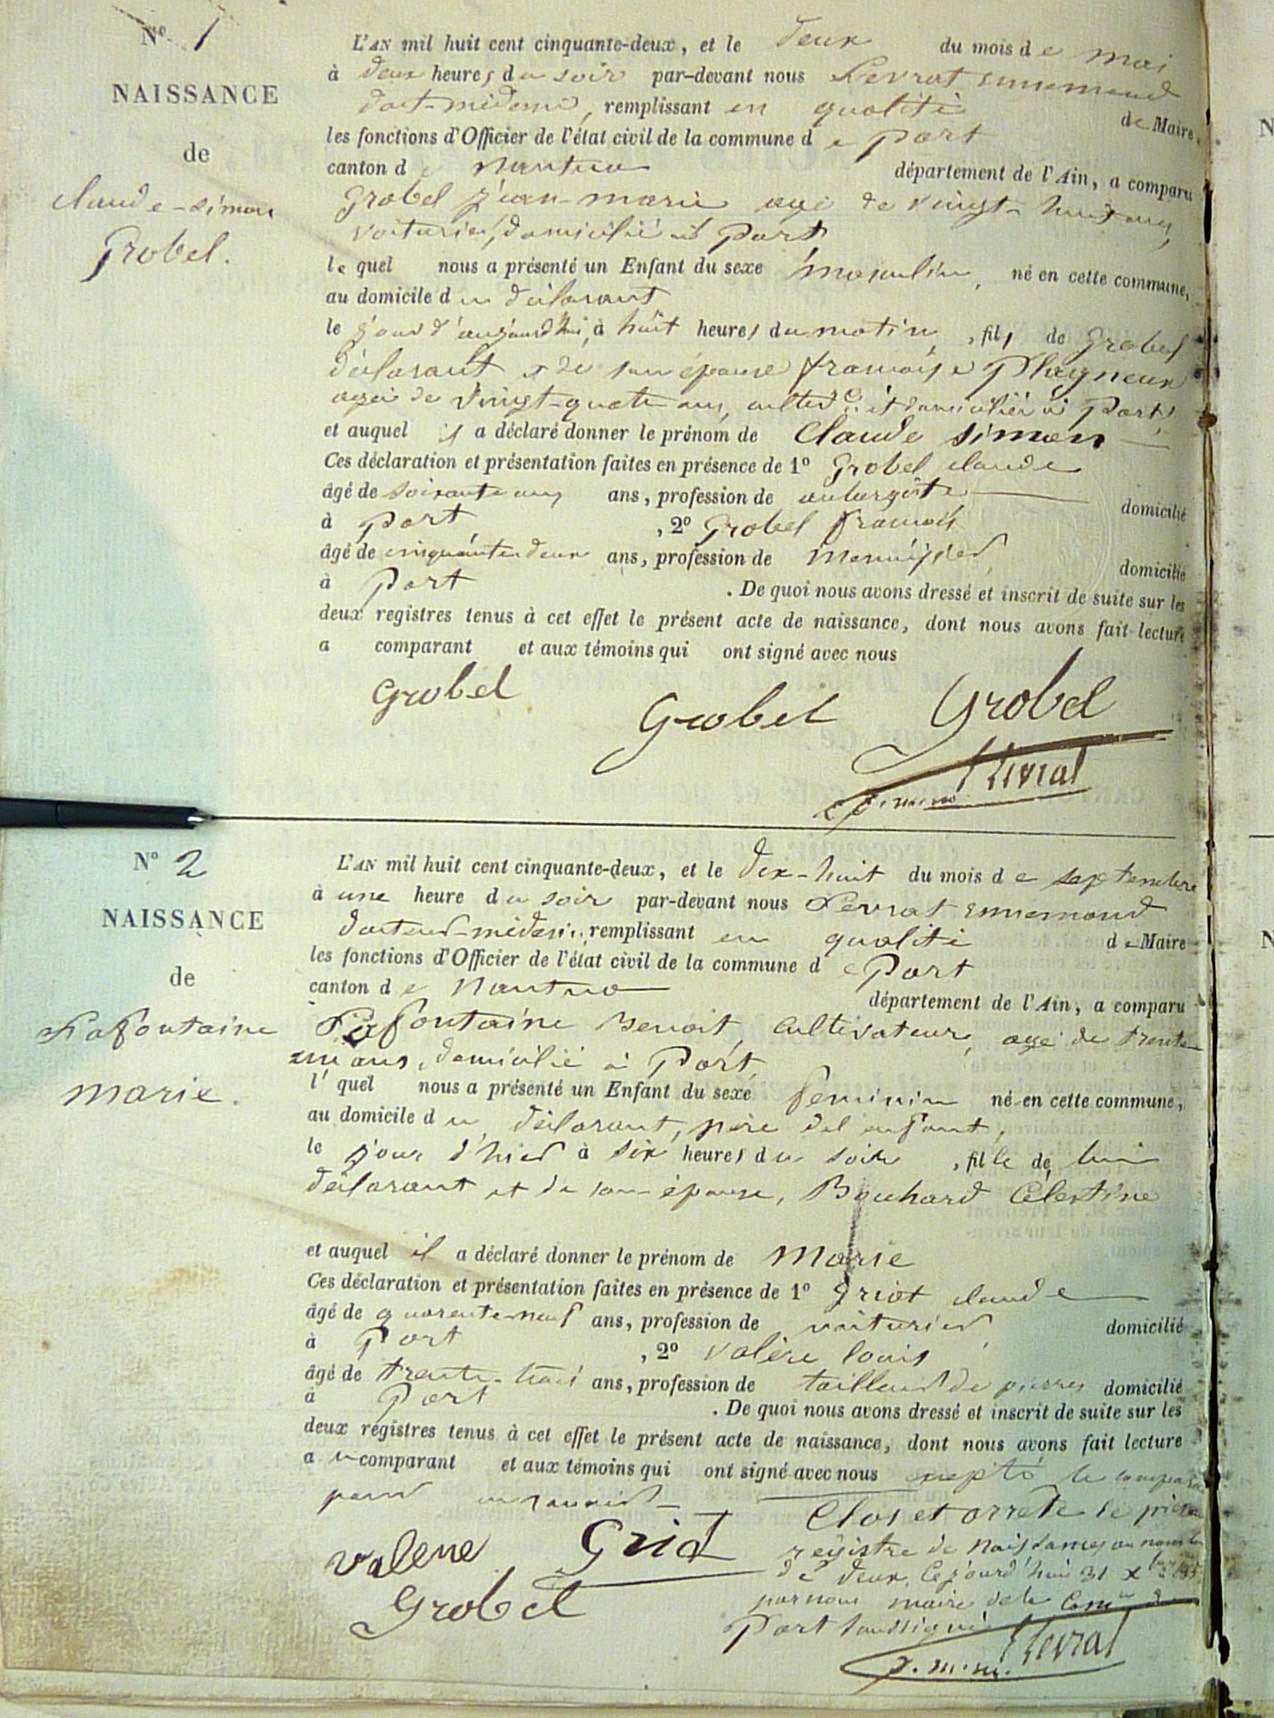 N° 1
NAISSANCE
de
Claude-Simon
Grobel.
L'AN mil huit cent cinquante-deux, et le deux du mois de mai
à deux heures du soir par-devant nous Levrat Ennemond
doct-médecin, remplissant en qualité de Maire
les fonctions d'Officier de l'état civil de la commune de Port
canton de Nantua département de l'Ain, a comparu
Grobel Jean-Marie agé de vingt-huit ans,
voiturier, domicilié à Port
lequel nous a présenté un Enfant du sexe masculin, né en cette commune,
au domicile du déclarant
le jour d'aujourd'hui, à huit heures du matin, fils de Grobel
déclarant et de son épouse Françoise
agée de vingt-quatre ans, et domiciliée à Port,
et auquel il a déclaré donner le prénom de Claude Simon
Ces déclaration et présentation faites en présence de 1° Grobel Claude
âgé de soixante ans ans, profession de aubergiste domicilié
à Port, 2° Grobel François
âgé de cinquante deux ans, profession de menuisier, domicilié
à Port. De quoi nous avons dressé et inscrit de suite sur les
deux registres tenus à cet effet le présent acte de naissance, dont nous avons fait lecture
a comparant et aux témoins qui ont signé avec nous
Grobel Grobel Grobel
Levrat
N° 2
NAISSANCE
de
Lafontaine
Marie.
L'AN mil huit cent cinquante-deux, et le dix-huit du mois de septembre
à une heure du soir par-devant nous Levrat Ennemond
docteur-médecin, remplissant en qualité de Maire
les fonctions d'Officier de l'état civil de la commune de Port
canton de Nantua département de l'Ain, a comparu
Lafontaine Benoit, cultivateur, agé de trente
un ans, domicilié à Port,
l'quel nous a présenté un Enfant du sexe féminin né en cette commune,
au domicile du déclarant, père del enfant,
le jour d'hier à six heures du soir, fille de lui
déclarant et de son épouse, Bouchard Célestine
et auquel il a déclaré donner le prénom de Marie
Ces déclaration et présentation faites en présence de 1° Griot Claude
âgé de quarente-neuf ans, profession de voiturier, domicilié
à Port, 2° Valère Louis
âgé de trente-trois ans, profession de tailleur de pierres domicilié
à Port. De quoi nous avons dressé et inscrit de suite sur les
deux registres tenus à cet effet le présent acte de naissance, dont nous avons fait lecture
a u comparant et aux témoins qui ont signé avec nous excepté le compara
pour
Clos et arrêté le
registre de naissances au nombre
de deux, ce jourd'hui 31 Xbre
par nous maire de la Comne de
Port soussigné
Valere Griot
Grobel
Levrat